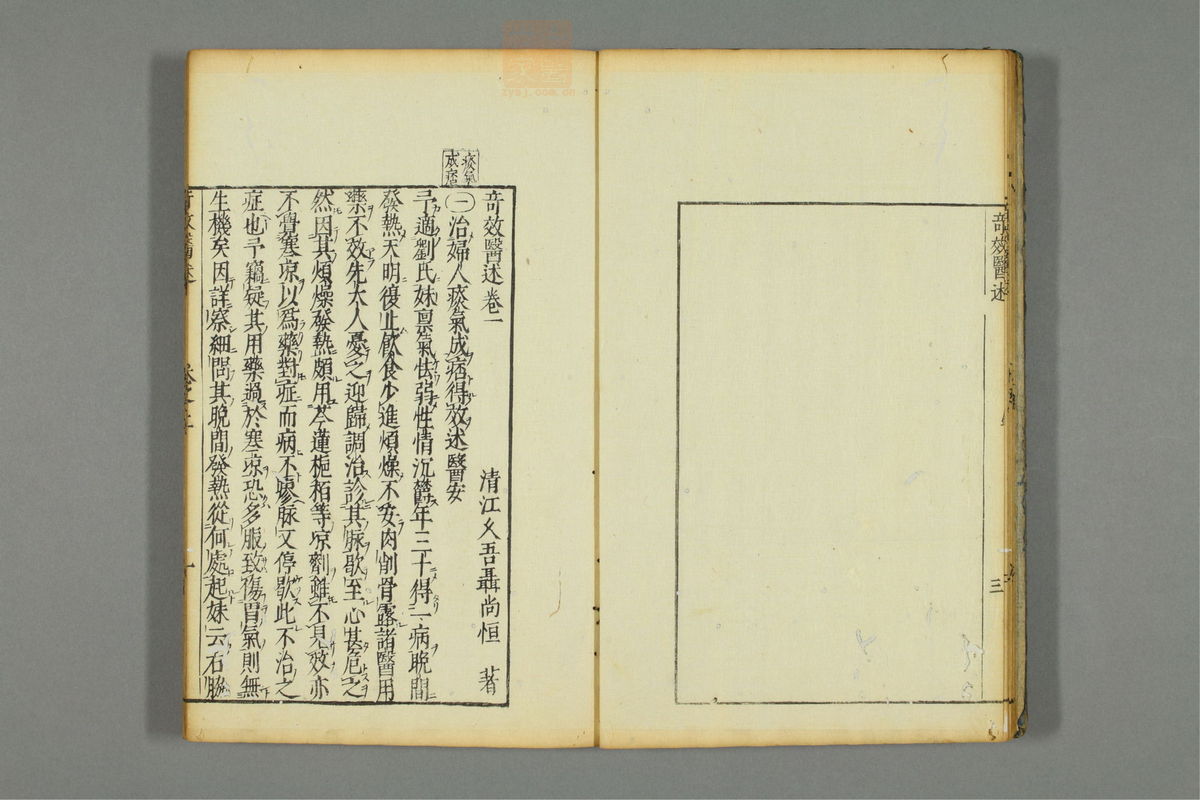 奇效醫述
三
痰氣
成痞
奇效醫述卷一
清江久吾聶尚恒 著
㊀治婦人痰氣成痞得效述醫案
予適劉氏妹禀氣怯弱性情沉鬱年三十得一病晚間
發熱天明復止飲食少進煩燥不安肉削骨露諸醫用
藥不效先大人憂之迎歸調治診其脉歇至心甚危之
然因其煩燥發熱頗用芩蓮梔栢等凉劑雖不見效亦
不覺寒凉以為藥對症而病不瘳脉又停歇此不治之
症也予竊疑其用藥過於寒凉恐多服致傷胃氣則無
生機矣因詳察細問其晚間發熱從何處起妹云右脇
奇效醫述
卷之一
一